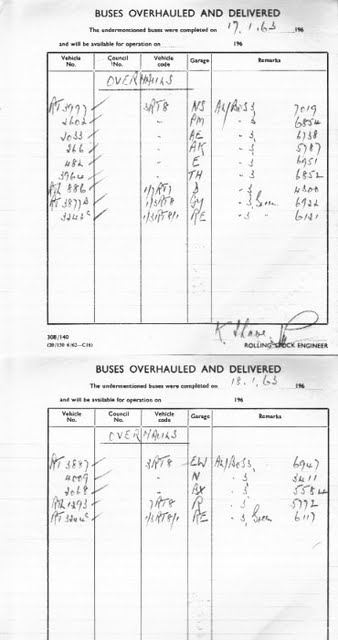 BUSES OVERHAULED AND DELIVERED
The undermentioned buses were completed on 17.1.63 196
and will be available for operation on 196
Vehicle No. Council No. Vehicle code Garage Remarks
OVERHAULS
RT 3977 3RT8 NS 7019
2602 - PM - 3 6854
2033 - AE - 3 6738
266 - AK - 3 5787
482 - E - 3 6951
3964 - TH - 3 6852
886 - 3 4300
RT 3877 1/3RT8 GY - 3, Green 6922
3243c 1/3RT8/1 RE - 3 - 6121
ROLLING STOCK ENGINEER
308/140
BUSES OVERHAULED AND DELIVERED
The undermentioned buses were completed on 18.1.63 196
and will be available for operation on 196
Vehicle No. Council No. Vehicle code Garage Remarks
OVERHAULS
RT 3887 3RT8 EW 6947
4009 - N - 3 3411
2068 - AX - 3 5584
1293 7RT8 R - 3 5772
RT 1/3RT8/1 RE - 3, Green 6117